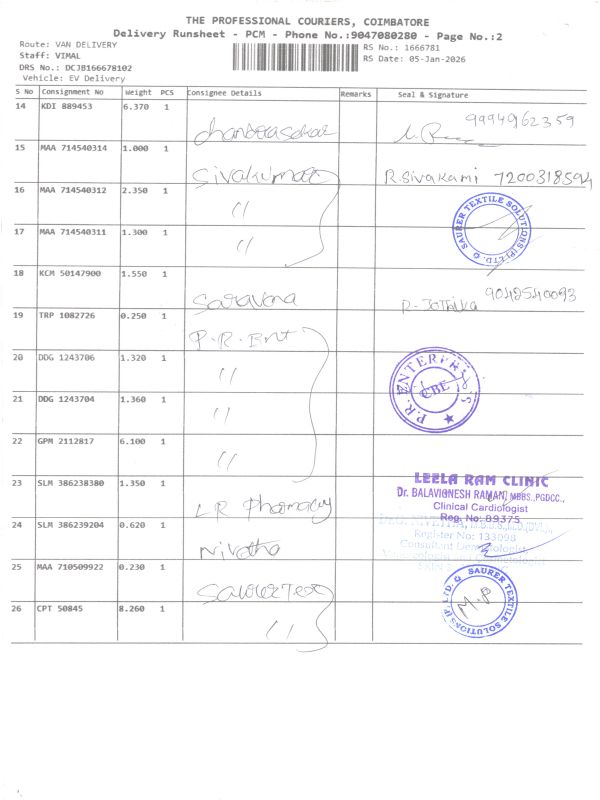 THE PROFESSIONAL COURIERS, COIMBATORE
Delivery Runsheet - PCM - Phone No.:9047080280 - Page No.:2
Route: VAN DELIVERY
Staff: VIMAL
DRS No.: DCJB166678102
Vehicle: EV Delivery
RS No.: 1666781
RS Date: 05-Jan-2026
S No Consignment No Weight PCS Consignee Details Remarks Seal & Signature
14 KDI 889453 6.370 1 chandrasekar 9994962359
15 MAA 714540314 1.000 1 Sivakumar R.Sivakami 7200318594
16 MAA 714540312 2.350 1 //
SAURER TEXTILE SOLUTIONS (P) LTD.
17 MAA 714540311 1.300 1 //
18 KCM 50147900 1.550 1 Saravana R-Jothika 9042540093
19 TRP 1082726 0.250 1 P.R.Ent
20 DDG 1243706 1.320 1 //
P.R. ENTERPRISES
CBE
21 DDG 1243704 1.360 1 //
22 GPM 2112817 6.100 1 //
23 SLM 386238380 1.350 1 LR Pharmacy
LEELA RAM CLINIC
Dr. BALAVIGNESH RAMAN, MBBS.,PGDCC.,
Clinical Cardiologist
Reg. No: 89375
24 SLM 386239204 0.620 1 Nivetha
Register No: 133098
Consultant Dermatologist,
25 MAA 710509922 0.230 1 Saurer Tex
26 CPT 50845 8.260 1 //
SAURER TEXTILE SOLUTIONS (P) LTD.
M.P